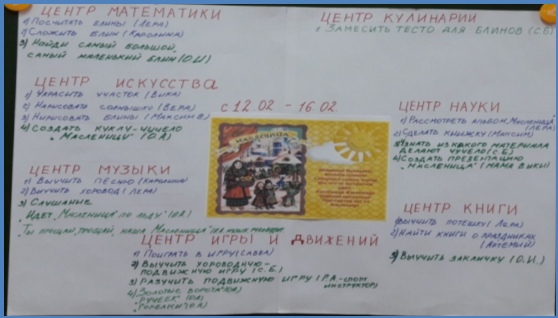 ЦЕНТР МАТЕМАТИКИ
1) Посчитать блины (Лера)
2) Сложить блин (Каролина)
3) Найди самый большой,
самый маленький блин (О.И)
ЦЕНТР КУЛИНАРИИ
Замесить тесто для блинов (С.Б)
ЦЕНТР ИСКУССТВА
1) Украсить участок (Вика)
2) Нарисовать солнышко (Вера)
3) Нарисовать блины (Максим В.)
4) Создать куклу-чучело
"Масленицу" (О.А)
с 12.02 - 16.02
МАСЛЕНИЦА
ЦЕНТР НАУКИ
1) Рассмотреть альбом "Масленица"
(Лера)
2) Сделать книжку (Максим)
3) Узнать из какого материала
делают чучело (С.Б.)
4) Создать презентацию
"Масленица" (мама Вики)
ЦЕНТР МУЗЫКИ
1) Выучить песню (Каролина)
2) Выучить хоровод (Лера)
3) Слушание
Идёт "Масленица" по льду"
"Ты прощай, прощай, наша Масленица"
ЦЕНТР КНИГИ
1) Выучить потешку (Лера)
2) Найти книги о праздниках
(Артемий)
3) Выучить закличку (О.И.)
ЦЕНТР ИГРЫ И ДВИЖЕНИЙ
1) Поиграть в игру (Савва)
2) Выучить хороводную-
подвижную игру (С.Б.)
3) Разучить подвижную игру (Р.А.-спорт
инструктор)
4) "Золотые ворота" (О.А)
"Ручеёк" (О.А)
"Горелки" (О.А)